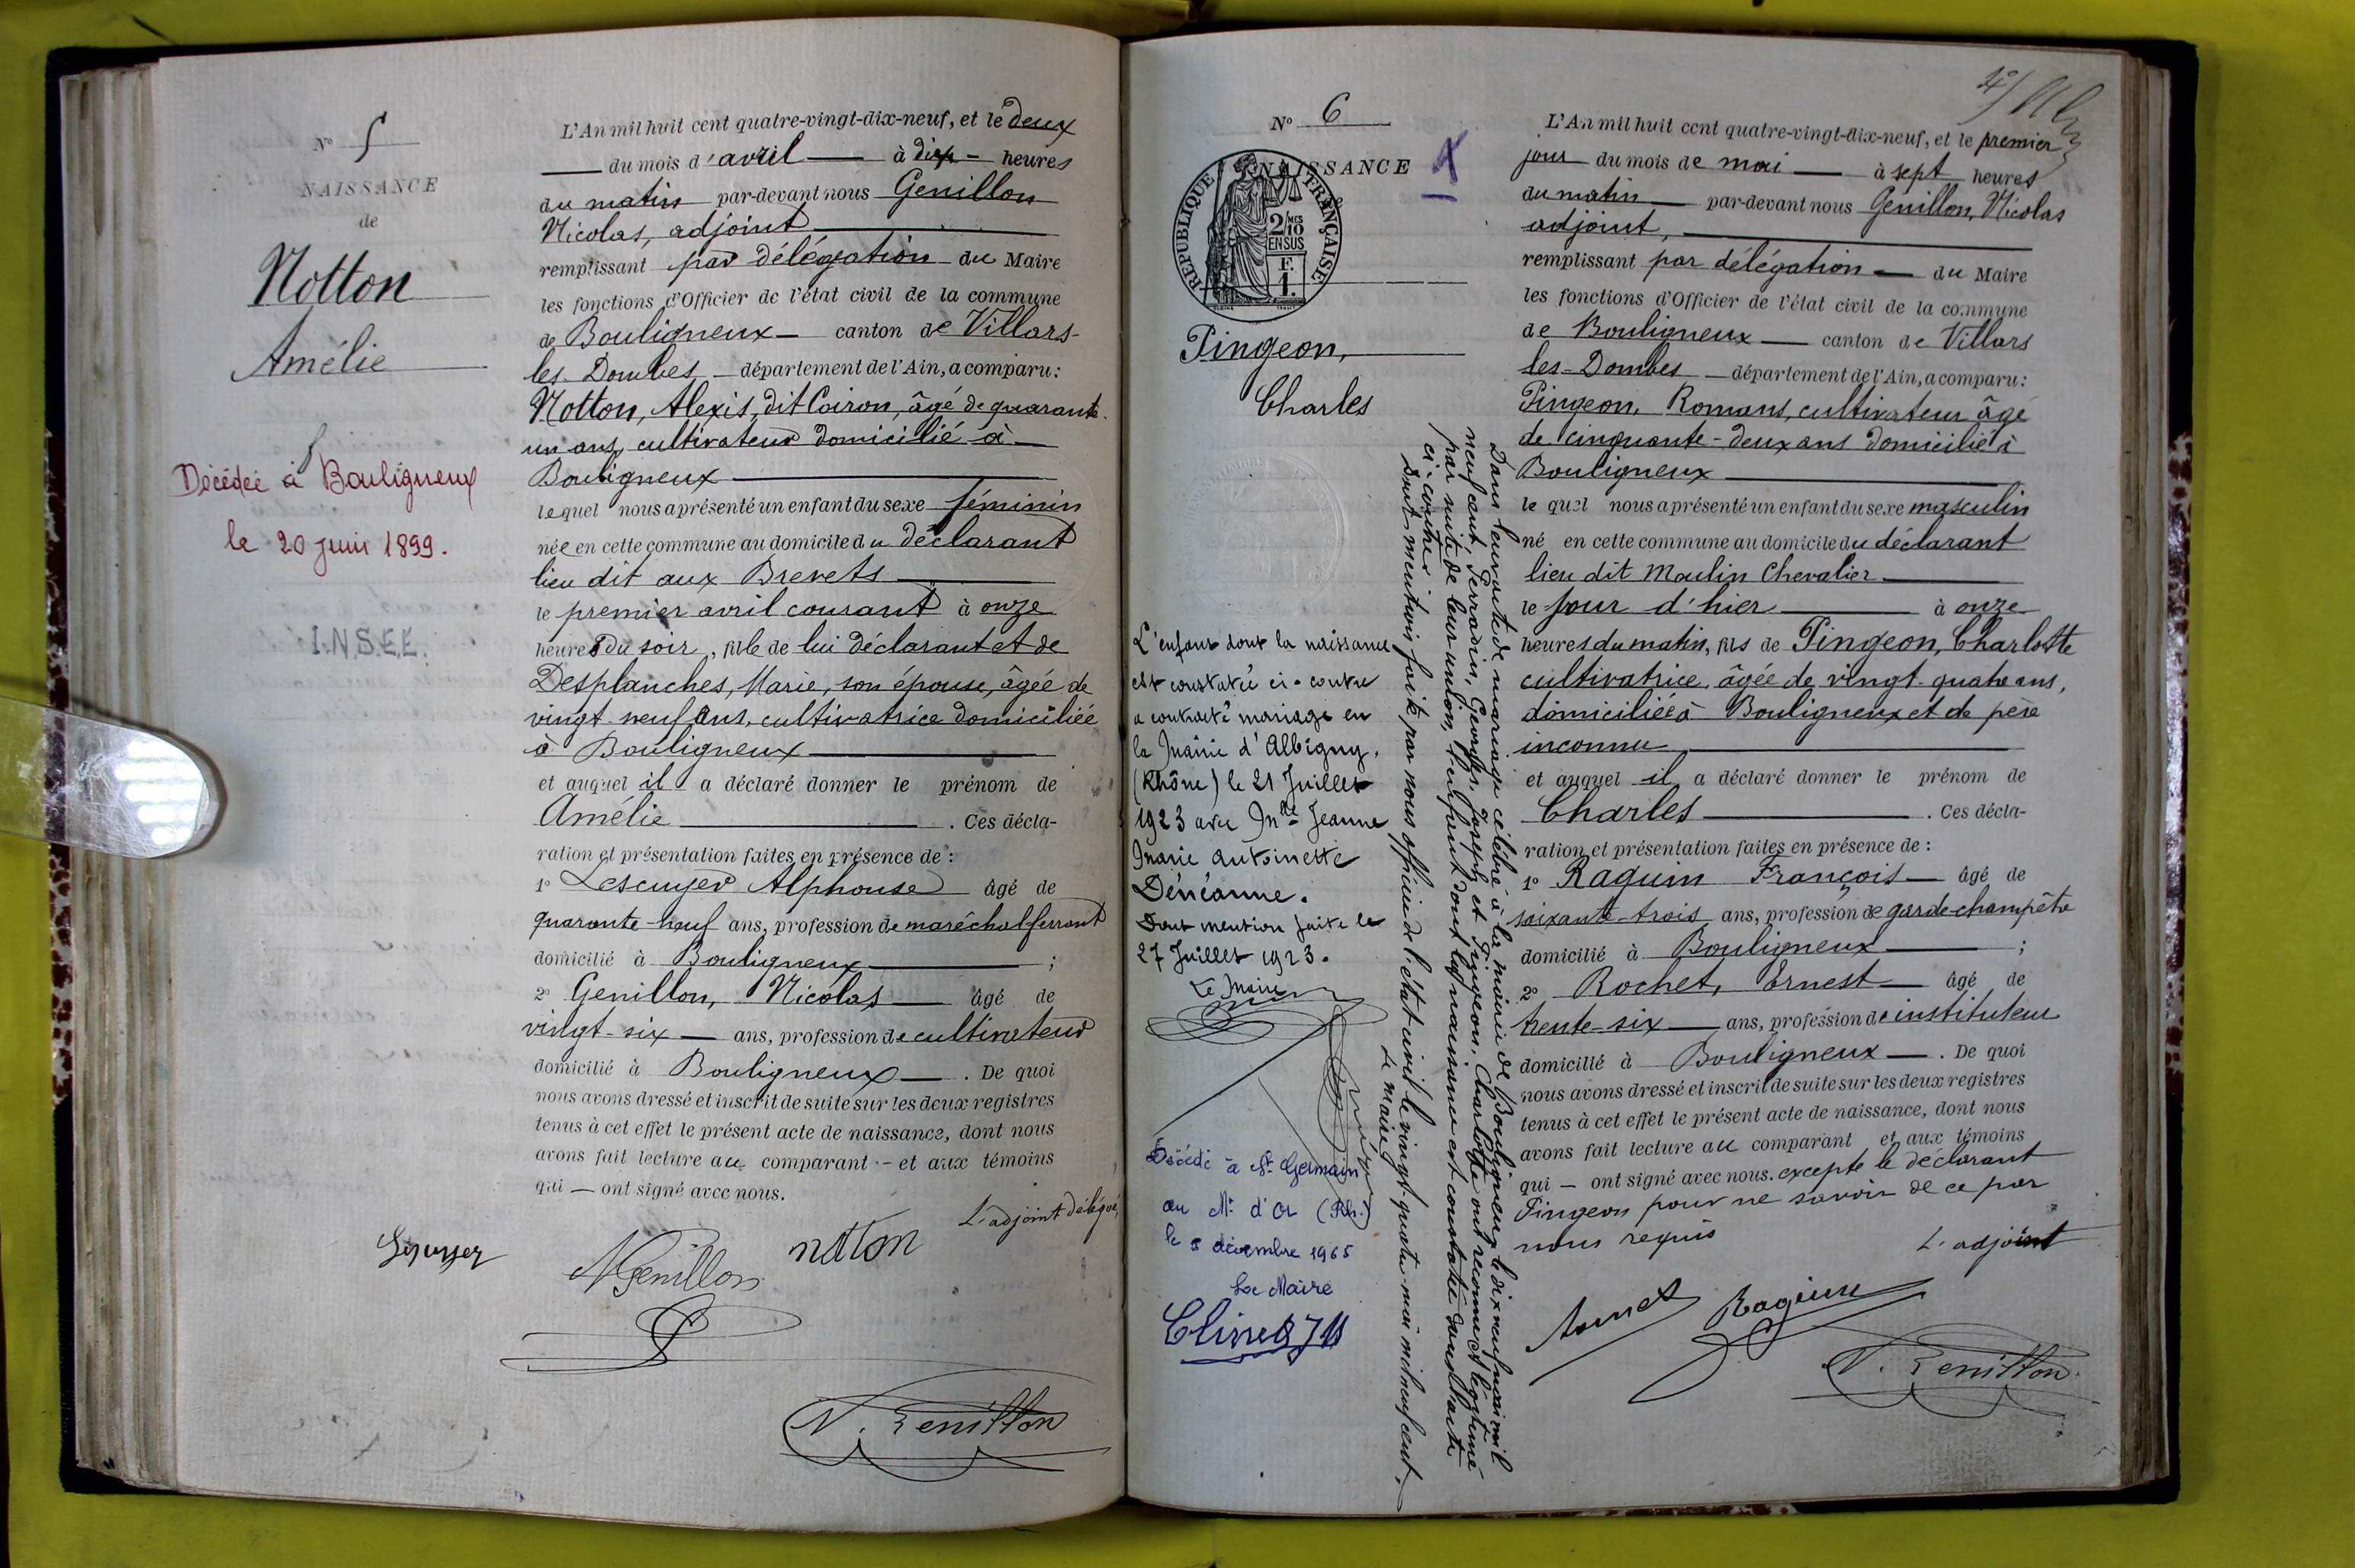 N° 5
NAISSANCE
de
Notton
Amélie
Décédée à Bouligneux
le 20 juin 1899.
I.N.S.E.E.
L'An mil huit cent quatre-vingt-dix-neuf, et le deux
du mois d'avril à dix heures
du matin par-devant nous Genillon
Nicolas, adjoint
remplissant par délégation du Maire
les fonctions d'Officier de l'état civil de la commune
de Bouligneux canton de Villars-
les-Dombes département de l'Ain, a comparu:
Notton, Alexis, dit Coiron, âgé de quarante-
un ans, cultivateur domicilié à
Bouligneux
lequel nous a présenté un enfant du sexe féminin
née en cette commune au domicile du déclarant
lieu dit aux Brevets
le premier avril courant à onze
heures du soir, fille de lui déclarant et de
Desplanches, Marie, son épouse, âgée de
vingt-neuf ans, cultivatrice domiciliée
à Bouligneux
et auquel il a déclaré donner le prénom de
Amélie . Ces décla-
ration et présentation faites en présence de :
1° Lescuyer Alphonse âgé de
quarante-neuf ans, profession de maréchal ferrant
domicilié à Bouligneux ;
2° Genillon, Nicolas âgé de
vingt-six ans, profession de cultivateur
domicilié à Bouligneux . De quoi
nous avons dressé et inscrit de suite sur les deux registres
tenus à cet effet le présent acte de naissance, dont nous
avons fait lecture au comparant et aux témoins
qui ont signé avec nous.
L'adjoint délégué,
notton
NGenillon
N. Genillon
N° 6
NAISSANCE
RÉPUBLIQUE FRANÇAISE
2/10 MES
EN SUS
F.
1.
Pingeon,
Charles
L'enfant dont la naissance
est constatée ci-contre
a contracté mariage en
la Mairie d'Albigny,
(Rhône) le 21 Juillet
1923 avec Mlle Jeanne
Marie Antoinette
Dénéanne.
Dont mention faite le
27 Juillet 1923.
Le Maire
Décédé à St Germain
au Mt d'Or (Rh.)
le 5 décembre 1965
Le Maire
Dans leur acte de mariage célébré à la mairie de Bouligneux le dix neuf mai mil
neuf cent, Perradin, Georges, Joseph et Pingeon, Charlotte ont reconnu et légitimé
par suite de leur union, l'enfant dont la naissance est constatée dans l'acte
ci contre.
Dont mention faite par nous officier de l'état civil le vingt-quatre mai mil neuf cent.
Le maire
L'An mil huit cent quatre-vingt-dix-neuf, et le premier
jour du mois de mai à sept heures
du matin par-devant nous Genillon, Nicolas
adjoint,
remplissant par délégation du Maire
les fonctions d'Officier de l'état civil de la commune
de Bouligneux canton de Villars
les-Dombes département de l'Ain, a comparu:
Pingeon, Romans, cultivateur âgé
de cinquante-deux ans domicilié à
Bouligneux
lequel nous a présenté un enfant du sexe masculin
né en cette commune au domicile du déclarant
lieu dit Moulin Chevalier
le jour d'hier à onze
heures du matin, fils de Pingeon, Charlotte
cultivatrice, âgée de vingt-quatre ans,
domiciliée à Bouligneux et de père
inconnu
et auquel il a déclaré donner le prénom de
Charles . Ces décla-
ration et présentation faites en présence de :
1° Raguin François âgé de
soixante-trois ans, profession de garde champêtre
domicilié à Bouligneux ;
2° Rochet, Ernest âgé de
trente-six ans, profession de instituteur
domicilié à Bouligneux . De quoi
nous avons dressé et inscrit de suite sur les deux registres
tenus à cet effet le présent acte de naissance, dont nous
avons fait lecture au comparant et aux témoins
qui ont signé avec nous. excepté le déclarant
Pingeon pour ne savoir de ce par
nous requis
L'adjoint
Raguin
N. Genillon